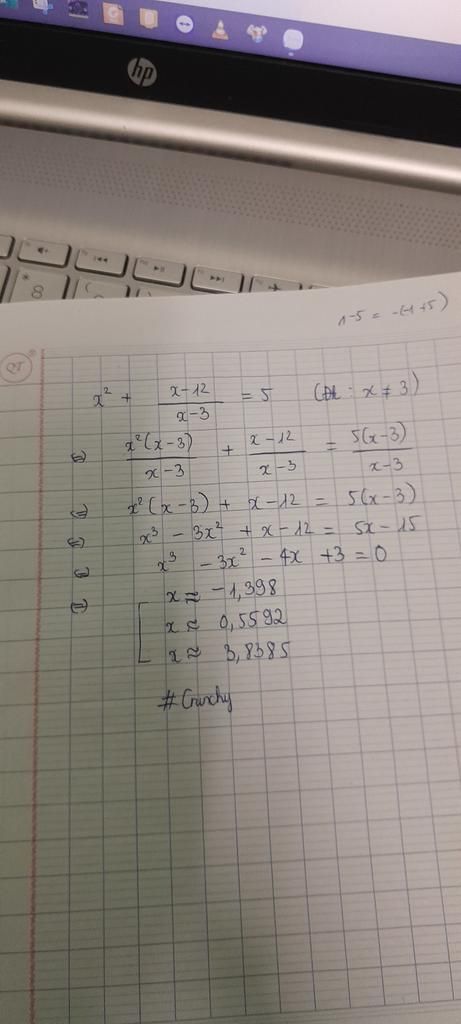 hp
* 8
(
1-5 = -(-1+5)
x² + (x-12)/(x-3) = 5 (ĐK : x ≠ 3)
⇔ x²(x-3)/(x-3) + (x-12)/(x-3) = 5(x-3)/(x-3)
⇔ x²(x-3) + x-12 = 5(x-3)
⇔ x³ - 3x² + x-12 = 5x-15
⇔ x³ - 3x² - 4x +3 = 0
⇔ x ≈ -1,398
x ≈ 0,5592
x ≈ 3,8385